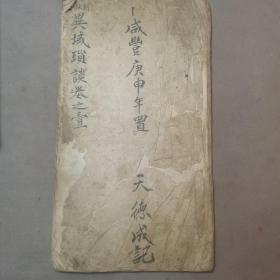 咸豐庚申年置
天德成記
異域瑣談卷之壹